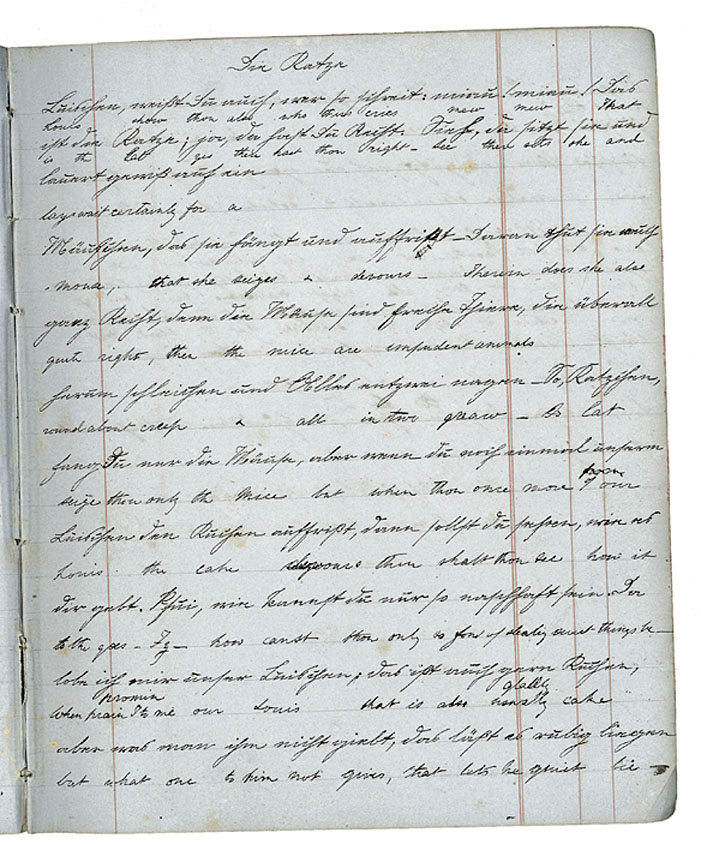 Die Katze
Luischen, weißt Du auch, wer so schreit: miau! miau! Das
Louis know thou also who thus cries mew mew that
ist die Katze; ja, da hast Du Recht. Sieh, da sitzt sie und
is the Cat yes then hast thou right - see there sits she and
lauert gewiß auf ein
lays wait certainly for a
Mäuschen, das sie fängt und auffrißt - Daran thut sie auch
mouse, that she seizes & devours - Therein does she also
ganz Recht, denn die Mäuse sind freche Thiere, die überall
quite right, then the mice are impudent animals
herum schleichen und Alles entzwei nagen - So, Katzchen,
round about creep & all in two gnaw - So Cat
fang Du nur die Mäuse, aber wenn du noch einmal unserm
seize thou only the Mice but when thou once more from our
Luischen den Kuchen auffrißt, dann sollst du sehen, wie es
Louis the cake devours then shalt thou see how it
dir geht. Pfui, wie kannst du nur so naschhaft sein. Da
to the goes - Fy - how canst thou only so fond of stealing sweet things be -
lobe ich mir unser Luischen; das ißt auch gern Kuchen,
When praise I to me our Louis that is also gladly cake
aber was man ihm nicht giebt, das läßt es ruhig liegen
but what one to him not gives, that lets he quiet lie -